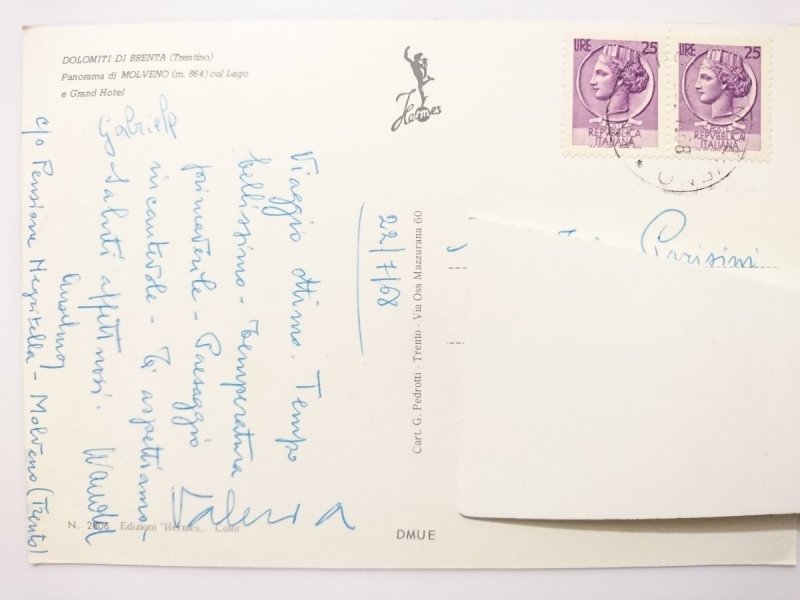 DOLOMITI DI BRENTA (Trentino)
Panorama di MOLVENO (m. 864) col Lago
e Grand Hotel
Hermes
LIRE 25
POSTE
REPVBBLICA
ITALIANA
LIRE 25
POSTE
REPVBBLICA
ITALIANA
22/7/68
Viaggio ottimo. Tempo
bellissimo - Temperatura
primaverile - Paesaggio
incantevole - Ti aspettiamo -
Saluti affettuosi.
Gabriele
Valeria
c/o Pensione Negritella - Molveno (Trento)
Parisini
Cart. G. Pedrotti - Trento - Via Oss Mazzurana 60
N. 2806 Edizioni "Hermes" Color
DMUE